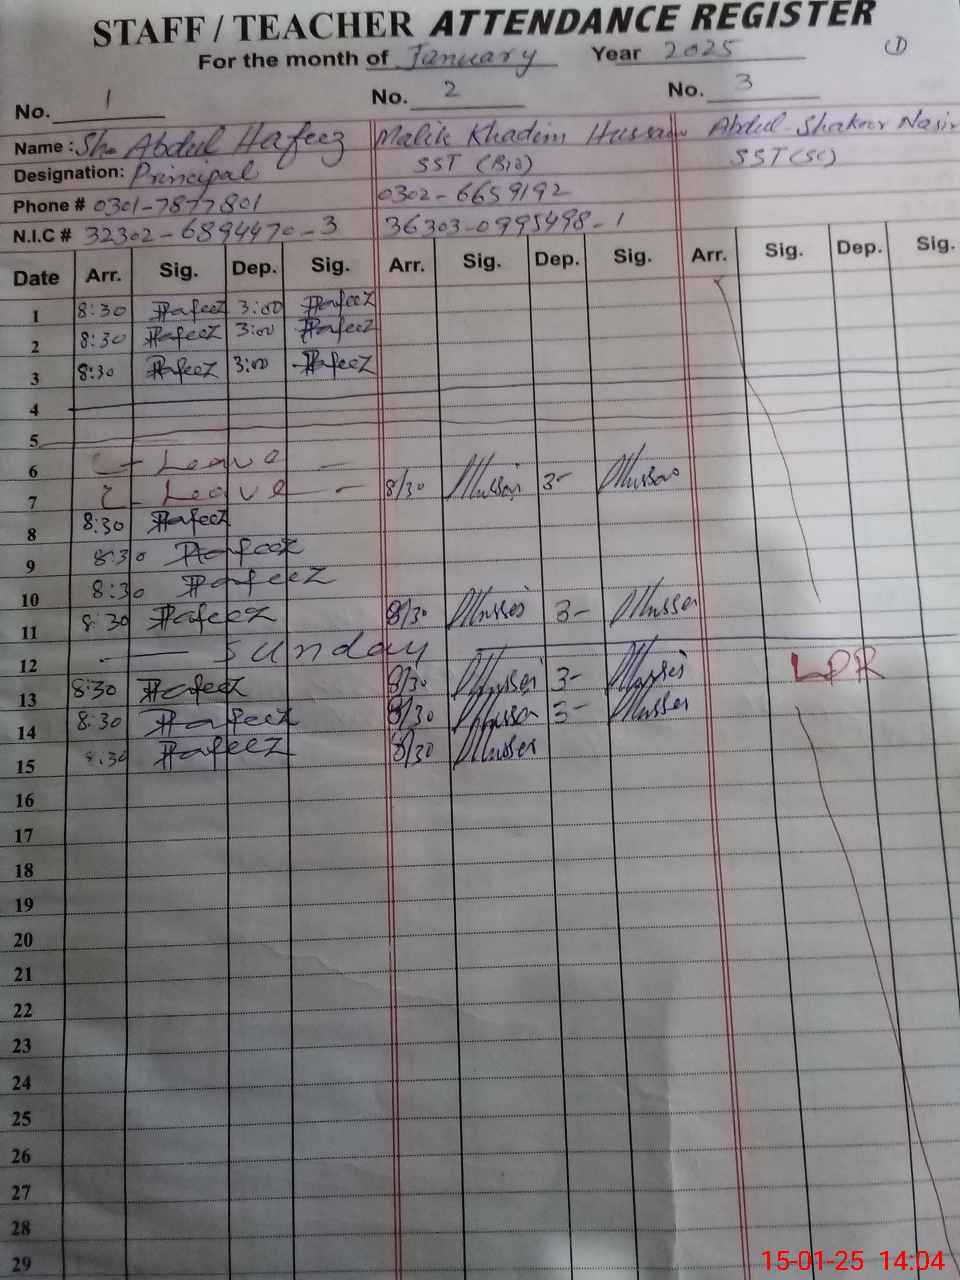 STAFF / TEACHER ATTENDANCE REGISTER
For the month of January Year 2025 1
No. 1 No. 2 No. 3
Name : Sh. Abdul Hafeez Malik Khadim Hussain Abdul Shakoor Nasir
Designation: Principal SST (Bio) SST (SC)
Phone # 0301-7877801 0302-6659192
N.I.C # 32302-6894470-3 36303-0995498-1
Date Arr. Sig. Dep. Sig. Arr. Sig. Dep. Sig. Arr. Sig. Dep. Sig.
1 8:30 Hafeez 3:00 Hafeez
2 8:30 Hafeez 3:00 Hafeez
3 8:30 Hafeez 3:00 Hafeez
4
5
6 Leave
7 Leave 8/30 3-
8 8:30 Hafeez
9 8:30 Hafeez
10 8:30 Hafeez
11 8:30 Hafeez 8/30 3-
12 Sunday LPR
13 8:30 Hafeez 8/30 3-
14 8:30 Hafeez 8/30 3-
15 8:30 Hafeez 8/30
16
17
18
19
20
21
22
23
24
25
26
27
28
29
15-01-25 14:04